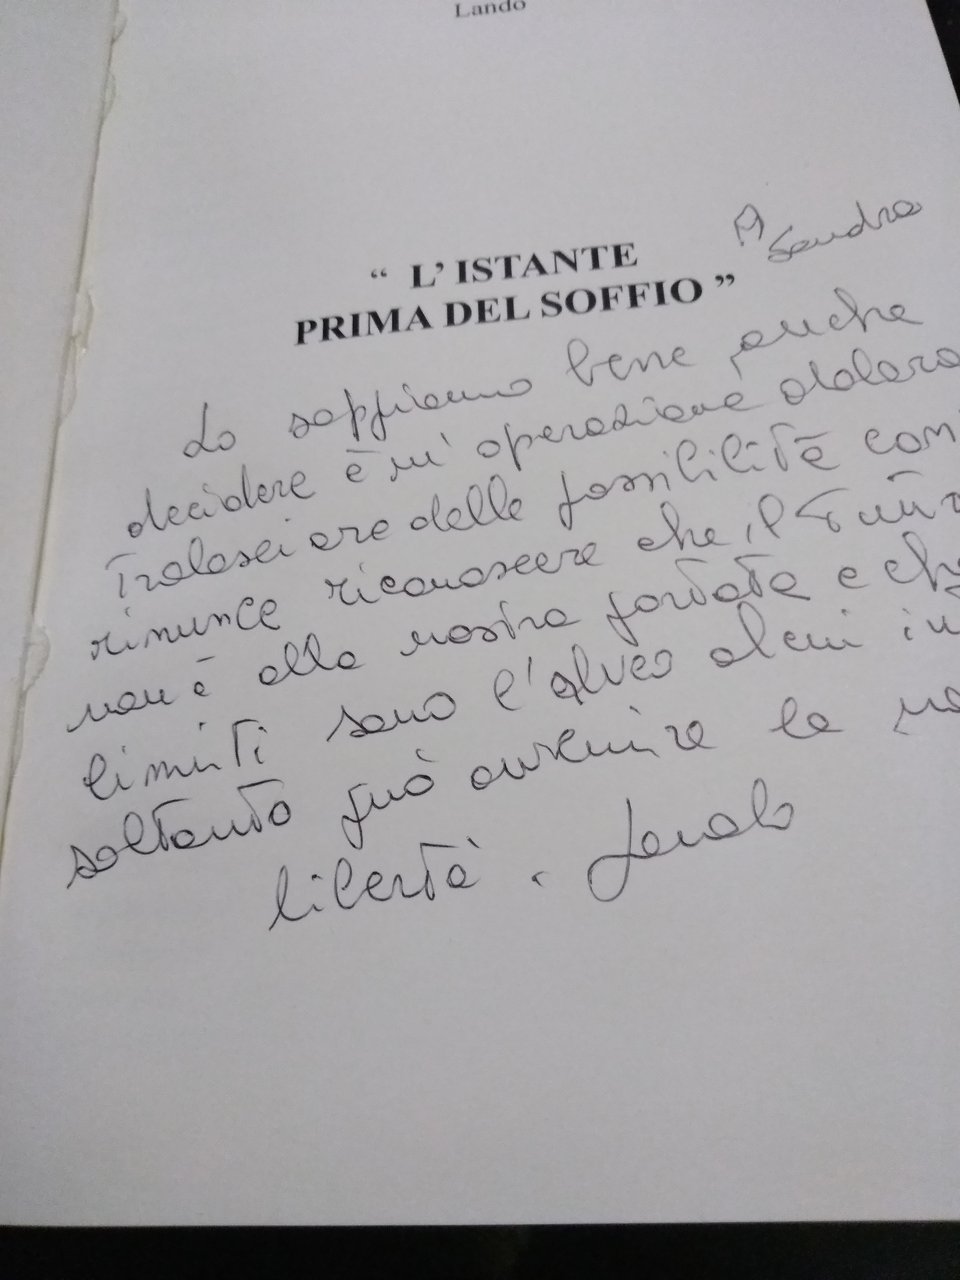 Lando
A
Sandra
“ L’ ISTANTE
PRIMA DEL SOFFIO ”
Lo sappiamo bene anche
decidere è un' operazione
tralasciare delle possibilità
rinunce riconoscere che il
non è alla nostra portata e
limiti sono l'alveo
soltanto può avvenire la
libertà.